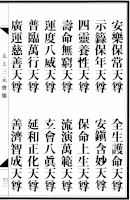 安樂保常天尊
全生護命天尊
示籙保年天尊
安鎮含妙天尊
四靈養性天尊
保命長生天尊
壽命無窮天尊
流演萬範天尊
運度八威天尊
立會八真天尊
普臨萬行天尊
延和正化天尊
廣運慈善天尊
善濟智成天尊
太上三元寶懺